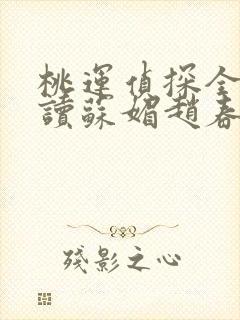 桃運偵探全
讀蘇媚趙春
殘影之心